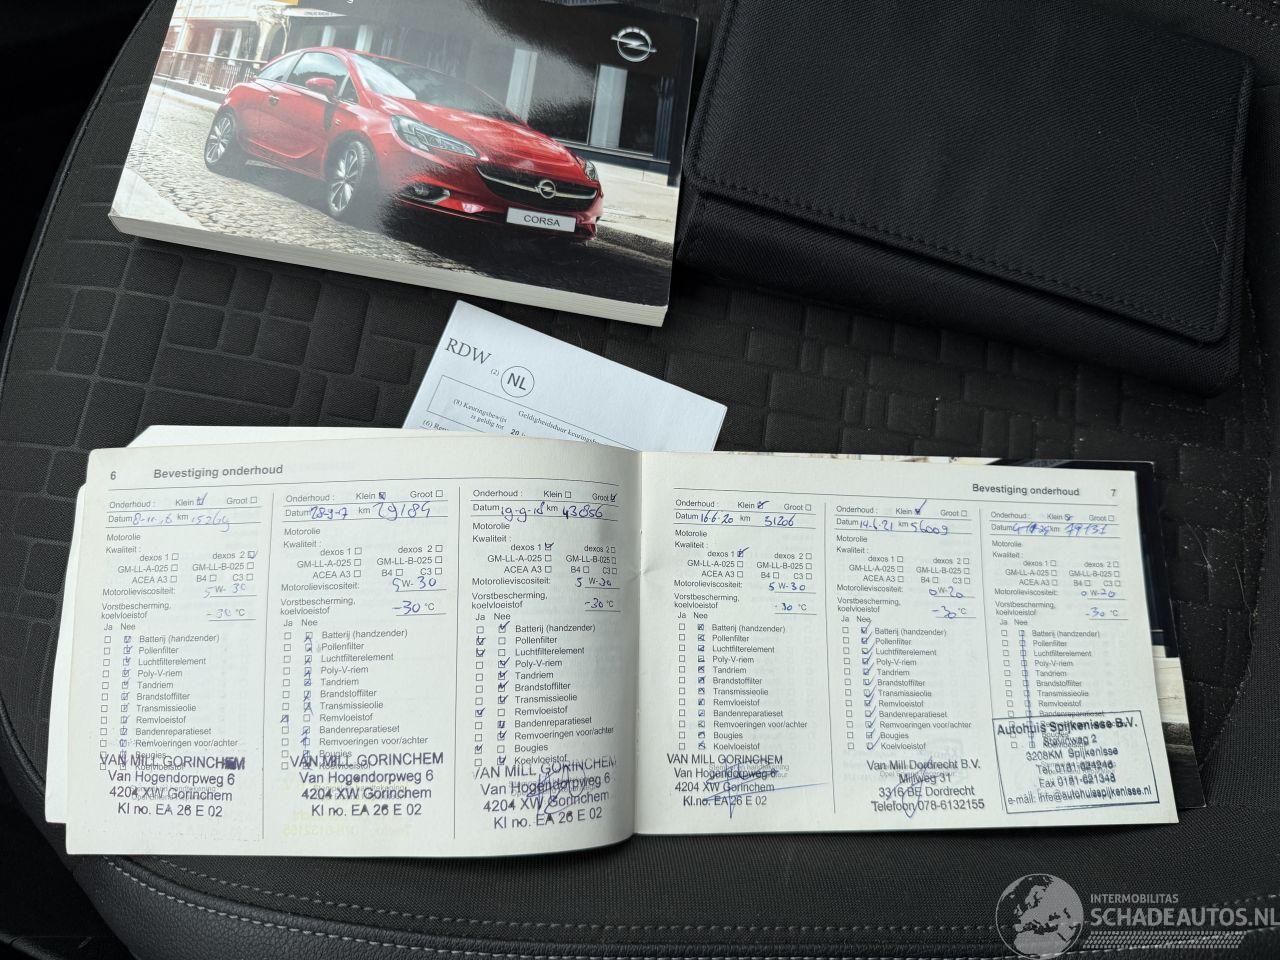 CORSA
RDW
(2) NL
(8) Keuringsbewijs
is geldig tot
Geldigheidsduur keuringsbewijs
20
6 Bevestiging onderhoud
Onderhoud : Klein Groot
Datum 8-11-16 km 15269
Motorolie
Kwaliteit :
dexos 1 dexos 2
GM-LL-A-025 GM-LL-B-025
ACEA A3 B4 C3
Motorolieviscositeit: 5W-30
Vorstbescherming,
koelvloeistof -30 °C
Ja Nee
Batterij (handzender)
Pollenfilter
Luchtfilterelement
Poly-V-riem
Tandriem
Brandstoffilter
Transmissieolie
Remvloeistof
Bandenreparatieset
Remvoeringen voor/achter
Bougies
Koelvloeistof
VAN MILL GORINCHEM
Van Hogendorpweg 6
4204 XW Gorinchem
KI no. EA 26 E 02
Onderhoud : Klein Groot
Datum 28-9-17 km 29184
Motorolie
Kwaliteit :
dexos 1 dexos 2
GM-LL-A-025 GM-LL-B-025
ACEA A3 B4 C3
Motorolieviscositeit: 5W-30
Vorstbescherming,
koelvloeistof -30 °C
Ja Nee
Batterij (handzender)
Pollenfilter
Luchtfilterelement
Poly-V-riem
Tandriem
Brandstoffilter
Transmissieolie
Remvloeistof
Bandenreparatieset
Remvoeringen voor/achter
Bougies
Koelvloeistof
VAN MILL GORINCHEM
Van Hogendorpweg 6
4204 XW Gorinchem
KI no. EA 26 E 02
Onderhoud : Klein Groot
Datum 19-9-18 km 43856
Motorolie
Kwaliteit :
dexos 1 dexos 2
GM-LL-A-025 GM-LL-B-025
ACEA A3 B4 C3
Motorolieviscositeit: 5 W-30
Vorstbescherming,
koelvloeistof -30 °C
Ja Nee
Batterij (handzender)
Pollenfilter
Luchtfilterelement
Poly-V-riem
Tandriem
Brandstoffilter
Transmissieolie
Remvloeistof
Bandenreparatieset
Remvoeringen voor/achter
Bougies
Koelvloeistof
VAN MILL GORINCHEM
Van Hogendorpweg 6
4204 XW Gorinchem
KI no. EA 26 E 02
Bevestiging onderhoud 7
Onderhoud : Klein Groot
Datum 16-6-20 km 51206
Motorolie
Kwaliteit :
dexos 1 dexos 2
GM-LL-A-025 GM-LL-B-025
ACEA A3 B4 C3
Motorolieviscositeit: 5 W-30
Vorstbescherming,
koelvloeistof -30 °C
Ja Nee
Batterij (handzender)
Pollenfilter
Luchtfilterelement
Poly-V-riem
Tandriem
Brandstoffilter
Transmissieolie
Remvloeistof
Bandenreparatieset
Remvoeringen voor/achter
Bougies
Koelvloeistof
VAN MILL GORINCHEM
Van Hogendorpweg 6
4204 XW Gorinchem
KI.no. EA 26 E 02
Onderhoud : Klein Groot
Datum 14-6-21 km 56009
Motorolie
Kwaliteit :
dexos 1 dexos 2
GM-LL-A-025 GM-LL-B-025
ACEA A3 B4 C3
Motorolieviscositeit: 0W-20
Vorstbescherming,
koelvloeistof -30 °C
Ja Nee
Batterij (handzender)
Pollenfilter
Luchtfilterelement
Poly-V-riem
Tandriem
Brandstoffilter
Transmissieolie
Remvloeistof
Bandenreparatieset
Remvoeringen voor/achter
Bougies
Koelvloeistof
Van Mill Dordrecht B.V.
Mijlweg 31
3316 BE Dordrecht
Telefoon 078-6132155
Onderhoud : Klein Groot
Datum km 77131
Motorolie
Kwaliteit :
dexos 1 dexos 2
GM-LL-A-025 GM-LL-B-025
ACEA A3 B4 C3
Motorolieviscositeit: 0W-20
Vorstbescherming,
koelvloeistof -30 °C
Ja Nee
Batterij (handzender)
Pollenfilter
Luchtfilterelement
Poly-V-riem
Tandriem
Brandstoffilter
Transmissieolie
Remvloeistof
Bandenreparatieset
Remvoeringen voor/achter
Autohuis Spijkenisse B.V.
Stavinweg 2
3208KM Spijkenisse
Fax 0181-621348
e-mail: info@autohuisspijkenisse.nl
INTERMOBILITAS
SCHADEAUTOS.NL